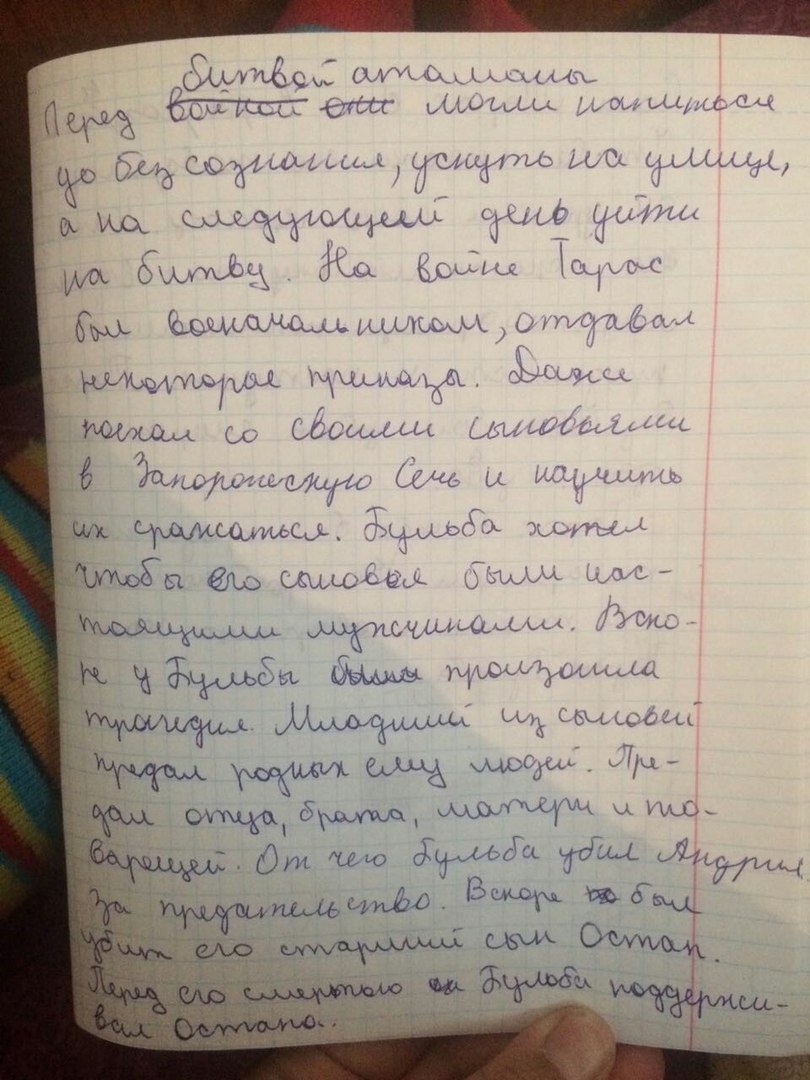 битвой атаманы
Перед войной они могли напиться
до без сознания, уснуть на улице,
а на следующей день уйти
на битву. На войне Тарас
был военачальником, отдавал
некоторые приказы. Даже
поехал со своими сыновьями
в Запорожескую Сечь и научить
их сражаться. Бульба хотел
чтобы его сыновья были нас-
тоящими мужчинами. Вско-
ре у Бульбы были произошла
трагедия. Младший из сыновей
предал родных ему людей. Пре-
дал отца, брата, матери и то-
варещей. От чего Бульба убил Андрия
за предательство. Вскоре был
убит его старший сын Остап.
Перед его смертью он Бульба поддержи-
вал Остапа.